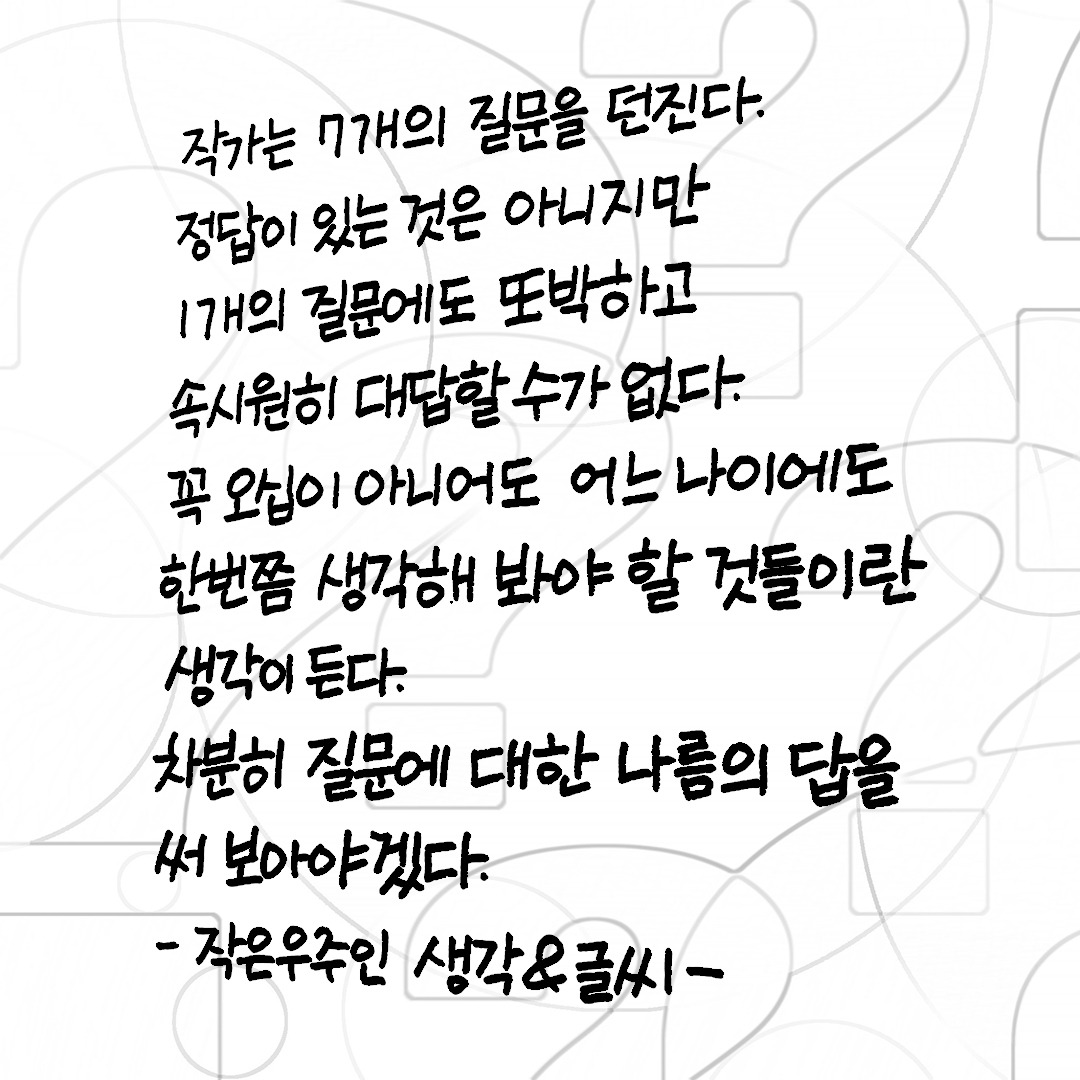 작가는 7개의 질문을 던진다.
정답이 있는 것은 아니지만
1개의 질문에도 또박하고
속시원히 대답할 수가 없다.
꼭 오십이 아니어도 어느 나이에도
한번쯤 생각해 봐야 할 것들이란
생각이 든다.
차분히 질문에 대한 나름의 답을
써 보아야겠다.
- 작은우주인 생각&글씨 -